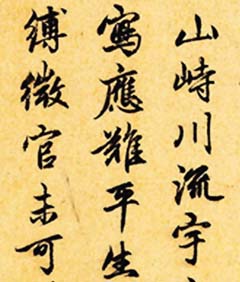 山峙川流宇
寫應難平生
縛微官未可